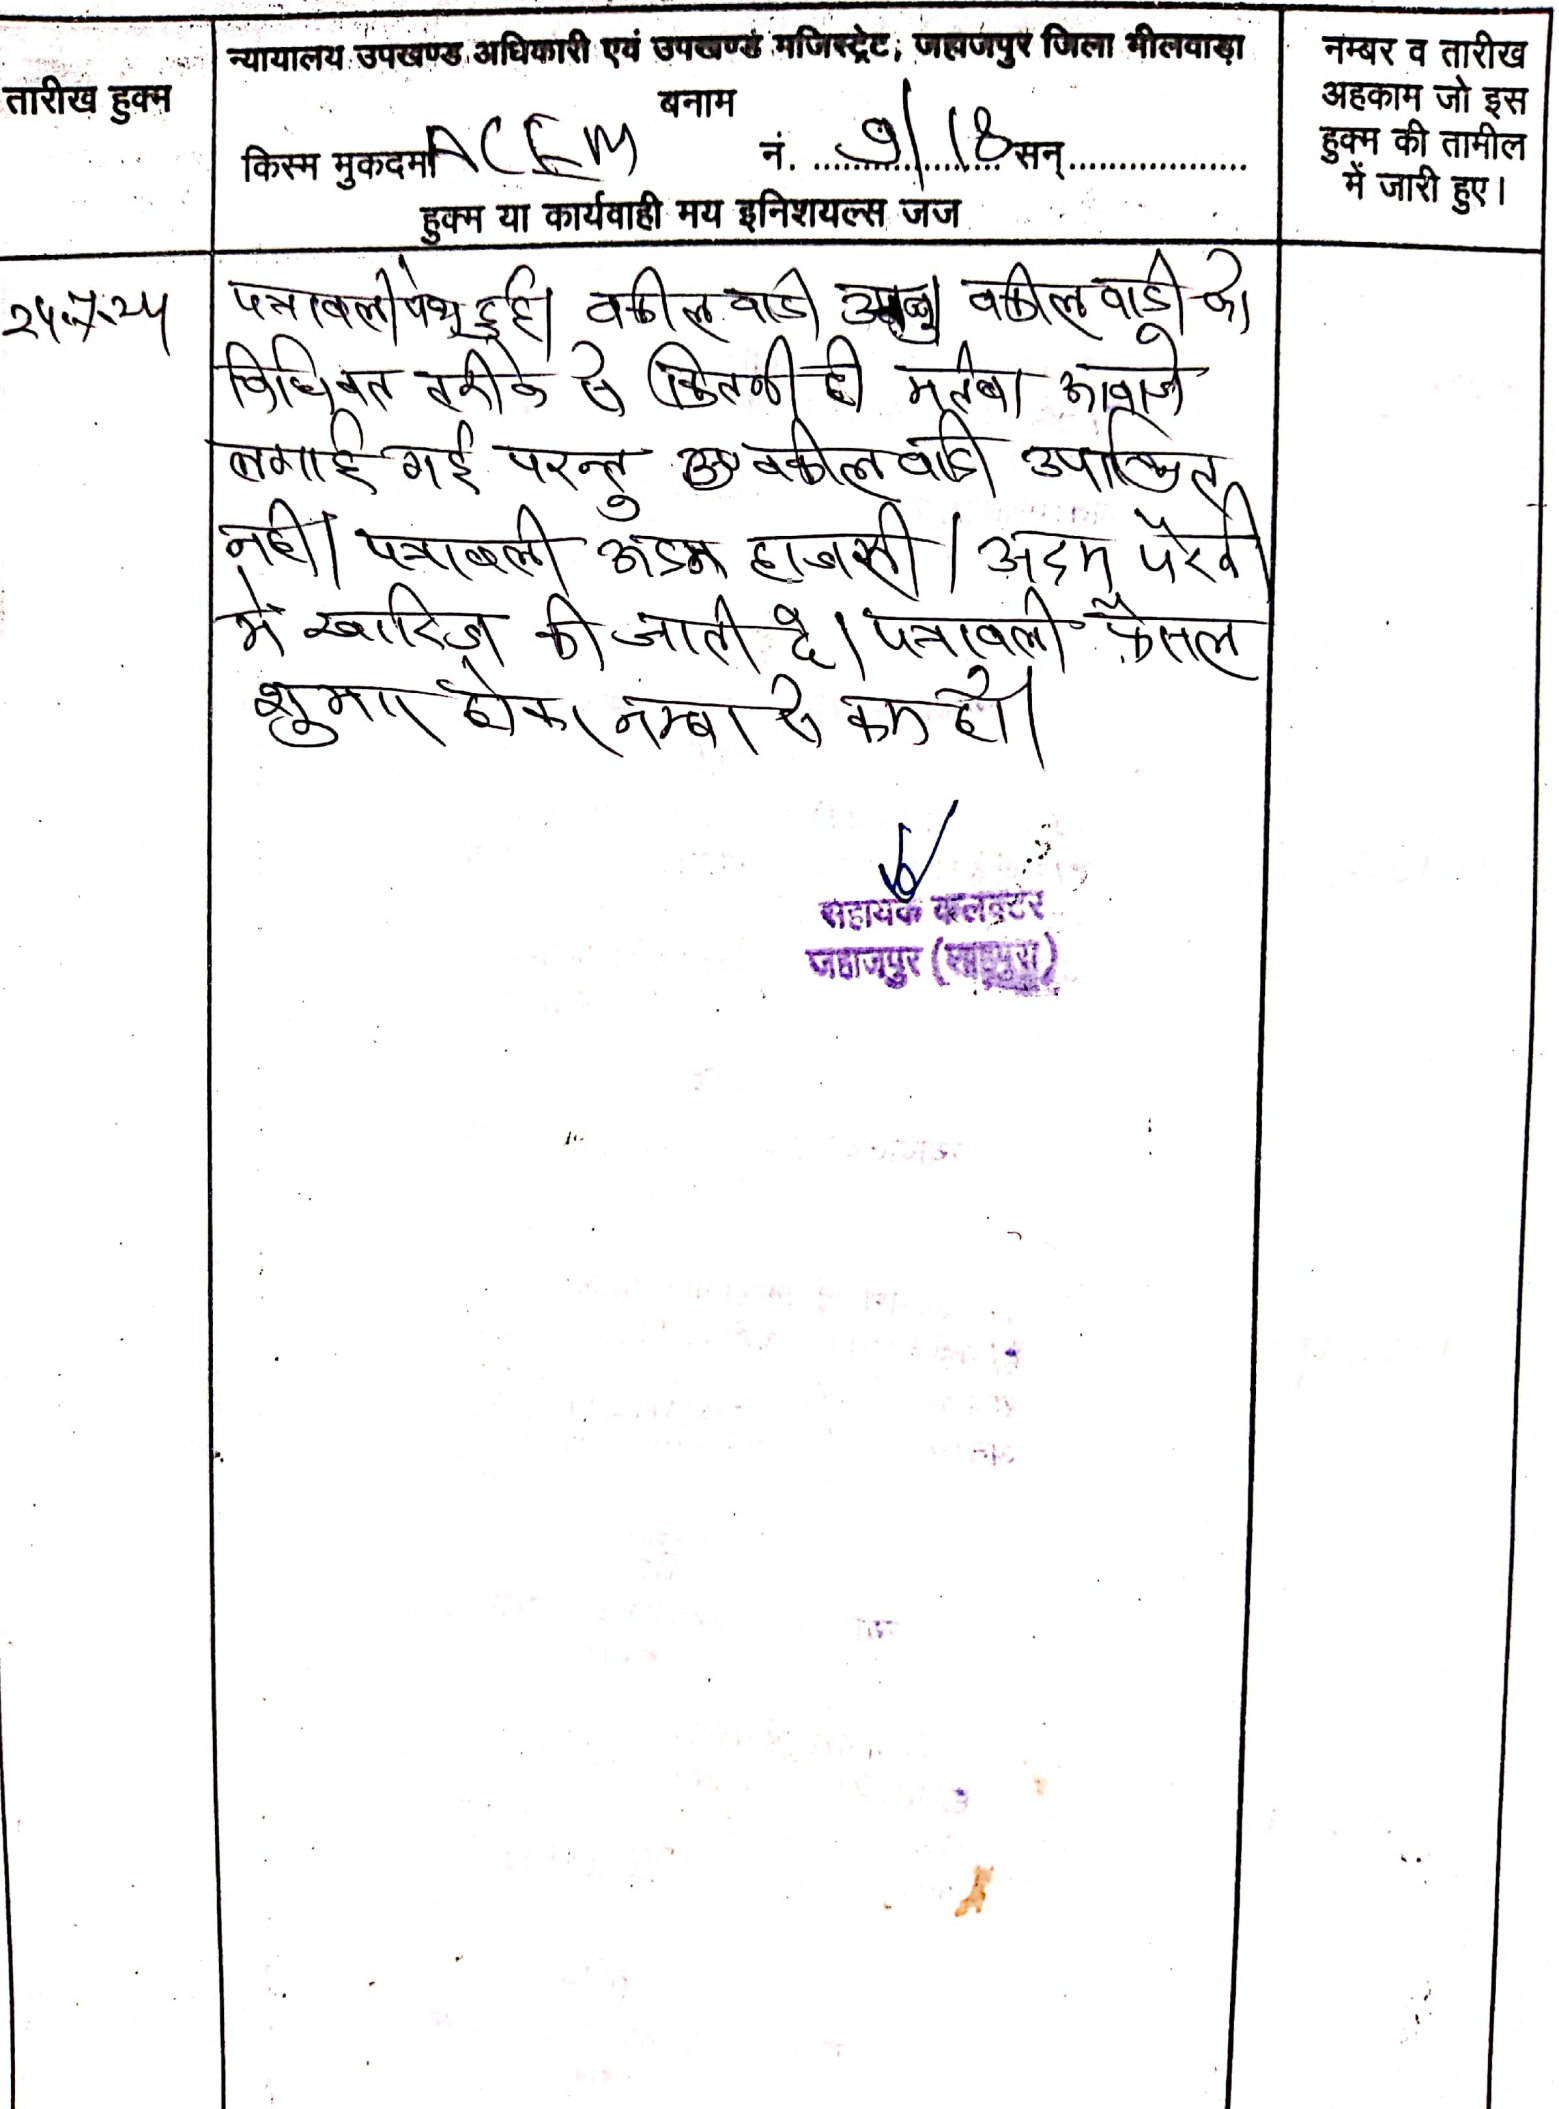 तारीख हुक्म
न्यायालय उपखण्ड अधिकारी एवं उपखण्ड मजिस्ट्रेट, जहाजपुर जिला भीलवाड़ा
बनाम
किस्म मुकदमा ACEM नं. 9/18 सन्
हुक्म या कार्यवाही मय इनिशयल्स जज
नम्बर व तारीख
अहकाम जो इस
हुक्म की तामील
में जारी हुए।
पत्रावली पेश हुई। वकील वादी वकील वादी को
विधिवत तरीके से कितनी ही मर्तबा आवाजे
लगाई गई परन्तु वकील वादी उपस्थित
नही। पत्रावली अदम हाजरी। अदम पैरवी
मे खारिज की जाती है। पत्रावली फैसल
शुमार होकर नम्बर से कम हो।
सहायक कलक्टर
जहाजपुर (शाहपुरा)